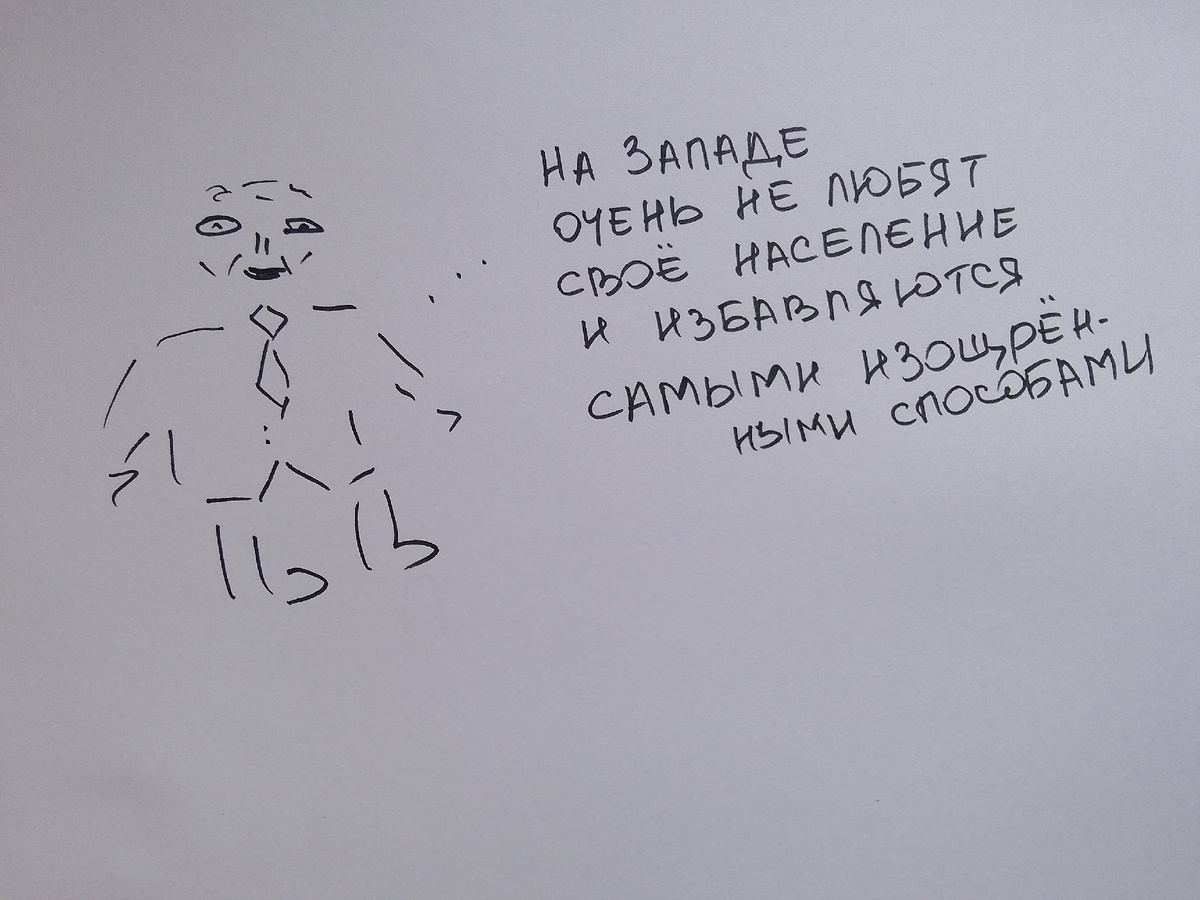 НА ЗАПАДЕ
ОЧЕНЬ НЕ ЛЮБЯТ
СВОЁ НАСЕЛЕНИЕ
И ИЗБАВЛЯЮТСЯ
САМЫМИ ИЗОЩРЁН-
НЫМИ СПОСОБАМИ